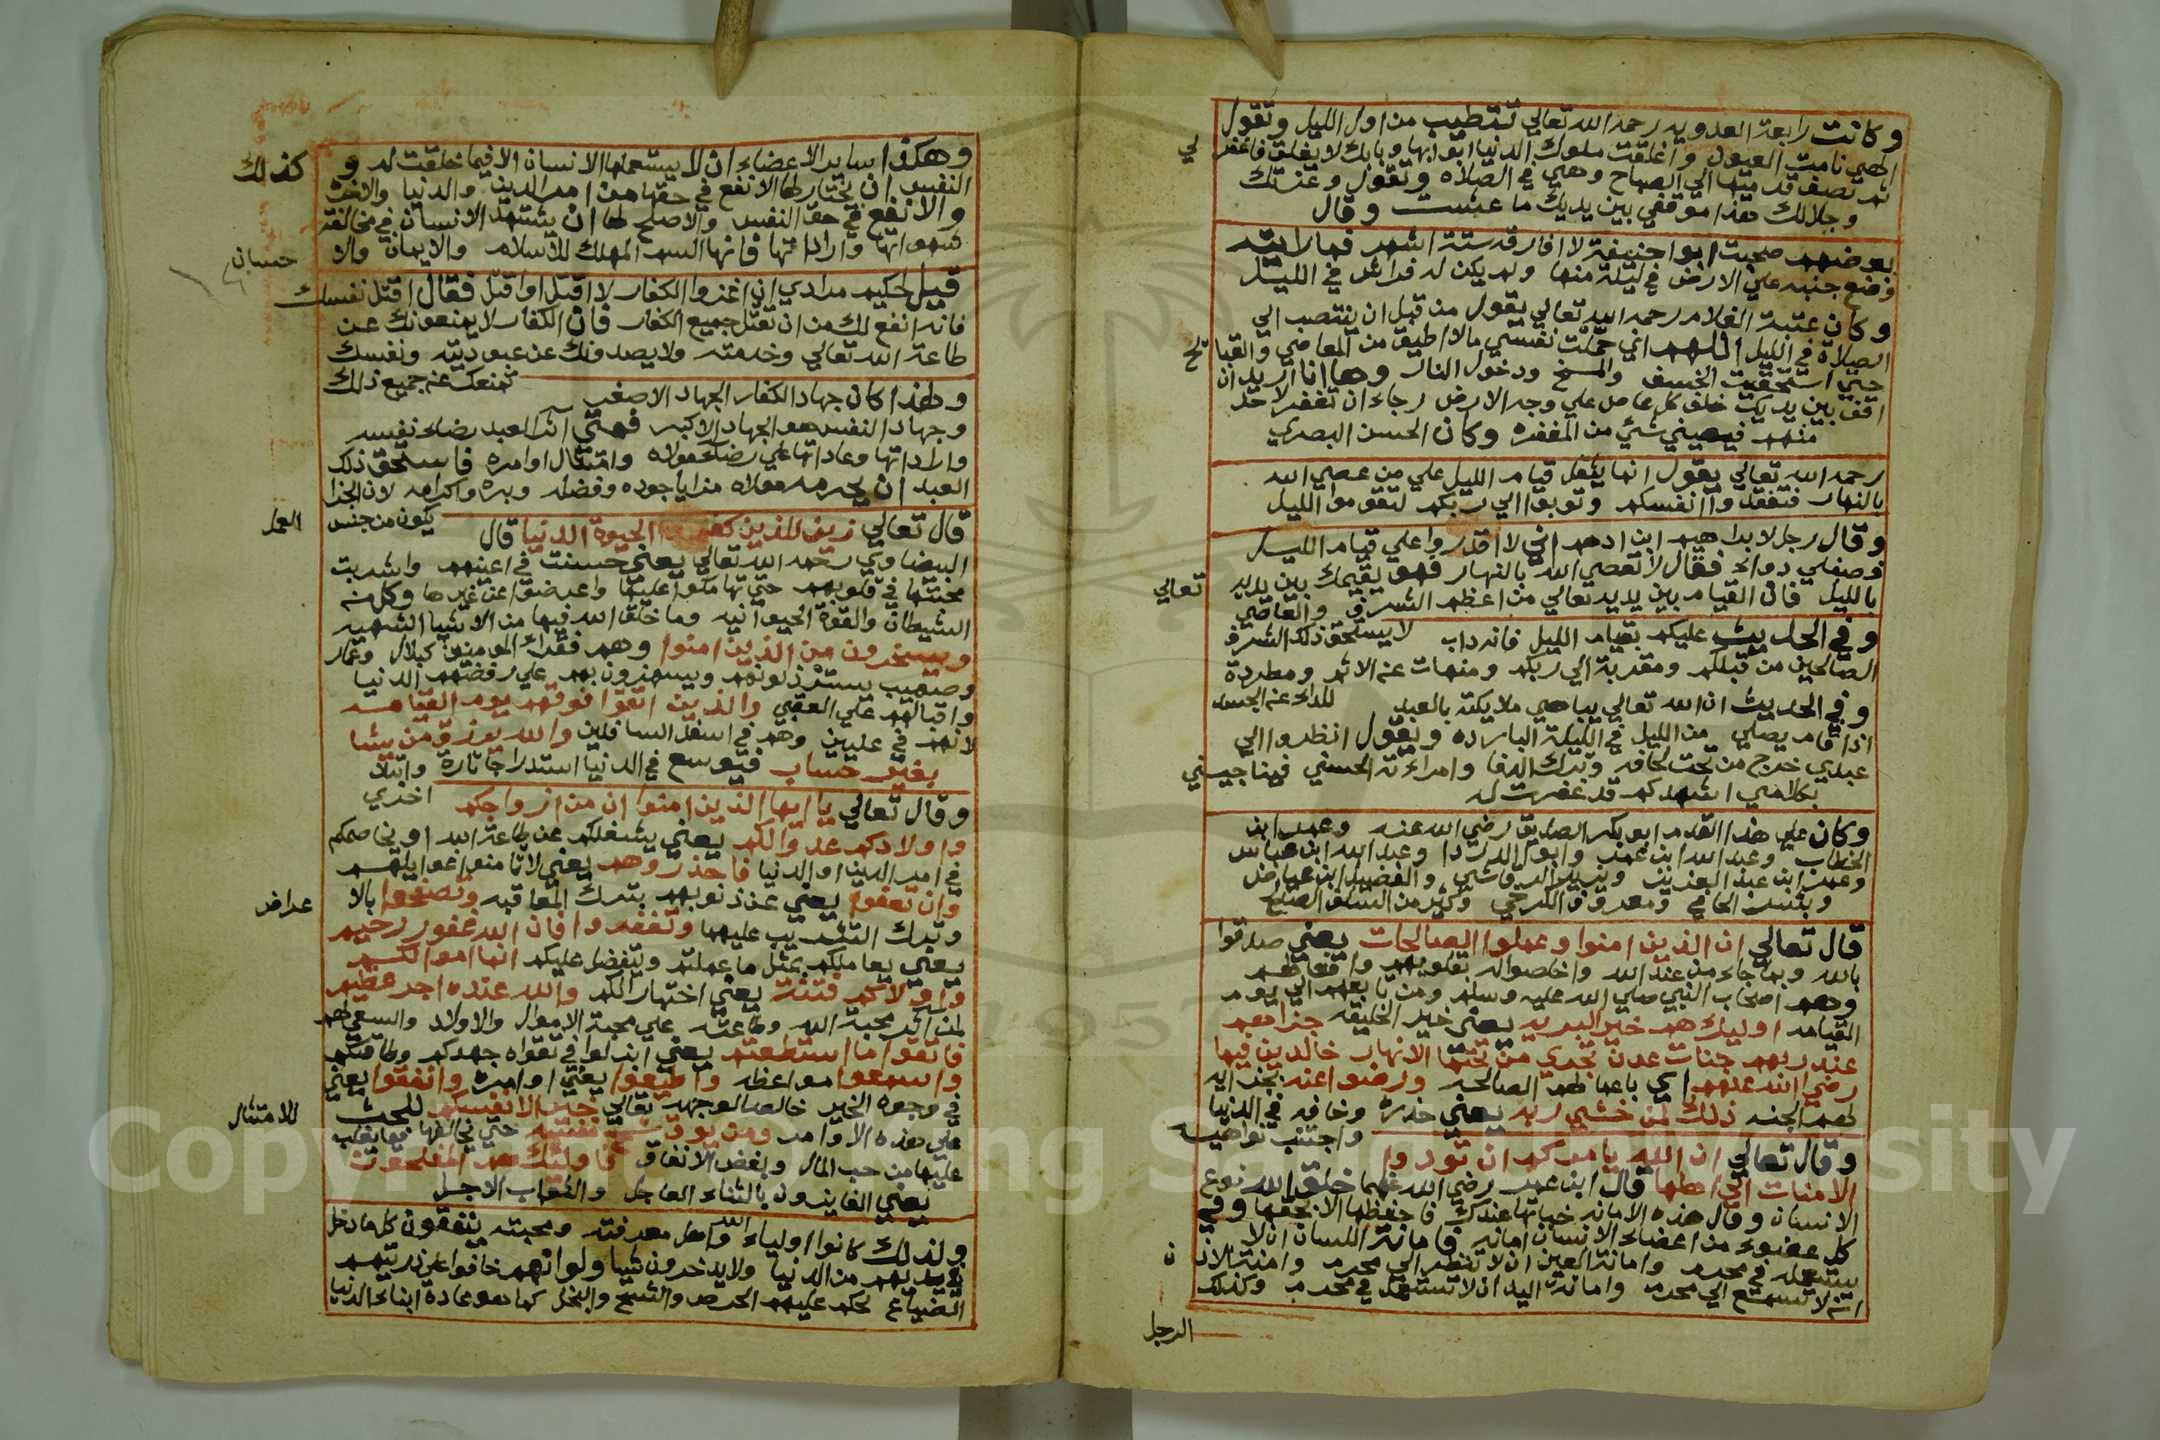 وكانت رابعة العدويه رحمها الله تعالي تتطيب من اول الليل وتقول
الهي نامت العيون واغلقت ملوك الدنيا ابوابها وبابك لا يغلق فاغفر لي
ثم تصف قدميها الي الصباح وهي في الصلاه وتقول وعزتك
وجلالك هذا موقفي بين يديك ما عشت وقال
بعرضهم صحبت ابو احنيفة لا افارقه ستة اشهر فما رايته
وضع جنبه علي الارض في ليلة منها ولم يكن له فراش في الليل
وكان عتبة الغلام رحمه الله تعالي يقول من قبل ان ينتصب الي
الصلاة في الليل اللهم اني حملت نفسي مالا اطيق من المعاصي والقبا ئح
حتي استحقيت الخسف والمسخ ودخول النار وها انا اريد ان
اقف بين يديك خلف كل عاصل علي وجه الارض رجاء ان تغفر لاحد
منهم فيصيني شئ من المغفره وكان الحسن البصري
رحمه الله تعالي يقول انما يثقل قيام الليل علي من عصي الله
بالنهار فتفقدوا انفسكم وتوبوا الي ربكم لتقوموا الليل
وقال رجل لابراهيم ابن ادهم اني لا اقدروا علي قيام الليل
فصفلي دواء فقال لا تعصي الله بالنهار فهو يقيمك بين يديه تعالي
بالليل فان القيام بين يديه تعالي من اعظم الشرف والعاصي
وفي الحديث عليكم بقيام الليل فانه داب لا يستحق ذلك الشرف
الصالحين من قبلكم ومقربة الي ربكم ومنهات عن الاثم ومطردة
وفي الحديث ان الله تعالي يباهي ملايكته بالعبد للداء عن الجسد
اذا قام يصلي من الليل في الليلة البارده ويقول انظروا الي
عبدي خرج من تحت لحافه وترك الدفا وامراءته الحسني فيناجيني
بكلامي اشهدكم قد غفرت له
وكان علي هذا القدم ابو بكر الصديق رضي الله عنه وعمر ابن
الخطاب وعبد الله ابن عمر وابو الدردا وعبد الله ابن عباس
وعمر ابن عبد العزيز ويزيد الرقاشي والفضيل ابن عياض
وبشر الحافي ومعروف الكرخي وكثير من السلف الصالح
قال تعالي ان الذين امنوا وعملوا الصالحات يعني صدقوا
بالله وبما جاء من عند الله واخلصوا له بقلوبهم وافعالهم
وهم اصحاب النبي صلي الله عليه وسلم ومن تابعهم الي يوم
القيامه اوليك هم خير البريه يعني خير الخليقه جزاهم
عند ربهم جنات عدن تجري من تحتها الانهار خالدين فيها
رضي الله عنهم اي باعمالهم الصالحه ورضوا عنه بجزايه
لهم الجنه ذلك لمن خشي ربه يعني حذره وخافه في الدنيا
وقال تعالي ان الله يامركم ان تودوا واجتنب نواهيه
الامنات الي اهلها قال ابن عمر رضي الله عنهما خلق الله نوع
الانسان وقال هذه الامانه خباتها عندك فاحفظها الا بحقها وفي
كل عضوء من اعضاء الانسان امانه فامانة اللسان ان لا
يستعمله في محرم وامانة العين ان لا تنظر الي محرم وامنة الاذ ن
ان لا تسمع الي محرم وامانة اليد ان لا تستعمل في محرم وكذلك
الرجل
وهكذا ساير الاعضاء ان لا يستعملها الانسان الا فيما خلقت له و كذلك
النفس ان يختار لها الانفع في حقها من امر الدين والدنيا والاخره
والانفع في حق النفس والاصلح لها ان يشتهد الانسان في مخالفة
شهواتها واراداتها فانها السم المهلك للاسلام والايمان والا حسان
قيل لحكيم مرادي ان اغزوا الكفار لا اقتل او اقتل فقال اقتل نفسك
فانه انفع لك من ان تقتل جميع الكفار فان الكفار لا يمنعونك عن
طاعة الله تعالي وخدمته ولا يصدونك عن عبوديته ونفسك
تمنعك عن جميع ذلك
ولهذا كان جهاد الكفار الجهاد الاصغر
وجهاد النفس هو الجهاد الاكبر فمتي اثر العبد رضاء نفسه
واراداتها وعاداتها علي رضاء مولاه وامتثال اوامره فاستحق ذلك
العبد ان يحرمه مولاه مزايا جوده وفضله وبره واكرامه لان الجزا
يكون من جنس العمل
قال تعالي زين للذين كفروا الحيوة الدنيا قال
البيضاوي رحمه الله تعالي يعني حسنت في اعينهم واشربت
محبتها في قلوبهم حتي تهالكوا عليها واعرضوا عن غيرها وكل منه
الشيطان والقوة الحيوانيه وما خلق الله فيها من الاشيا الشهيه
ويسخرون من الذين امنوا وهم فقراء المومنين كبلال وعمار
وصهيب يسترذلونهم ويستهزون بهم علي رفضهم الدنيا
واقبالهم علي العقبي والذين اتقوا فوقهم يوم القيامه
لانهم في عليين وهم في اسفل السافلين والله يرزق من يشا
بغير حساب فيوسع في الدنيا استدراجا تارة وابتلا
وقال تعالي يا ايها الذين امنوا ان من ازواجكم اخري
واولادكم عدوا لكم يعني يشغلكم عن طاعة الله او يخاصمكم
في امر الدين او الدنيا فاحذروهم يعني لا تامنوا غوايلهم
وان تعفوا يعني عن ذنوبهم بترك المعاقبه وتصفحوا بالا عراض
وترك التثريب عليهما وتغفروا فان الله غفور رحيم
يعني يعاملكم بمثل ما عملتم ويتفضل عليكم انما اموالكم
واولادكم فتنة يعني اختبار لكم والله عنده اجر عظيم
لمن اثر محبة الله وطاعته علي محبة الاموال والاولاد والسعي لهم
فاتقوا ما استطعتم يعني ابذلوا في تقواه جهدكم وطاقتكم
واسمعوا مواعظه واطيعوا يعني اوامره وانفقوا يعني
في وجوه الخير خالصا لوجهه تعالي خيرا لانفسكم للحث للامتثال
علي هذه الاوامر ومن يوق شح نفسه حتي يخالفها فيما يغلب
عليها من حب المال وبغض الانفاق فاوليك هم المفلحون
يعني الفايزون بالثناء العاجل والثواب الاجل
ولذلك كانوا اولياء الله واهل معرفته ومحبته ينفقون كلما دخل
بيديهم من الدنيا ولا يدخرون شيا ولو انهم خافوا علي ذريتهم
الضياع لحكم عليهم الحرص والشح والبخل كما هو عادة ابناء الدنيا
Copyright © King Saud University
1957